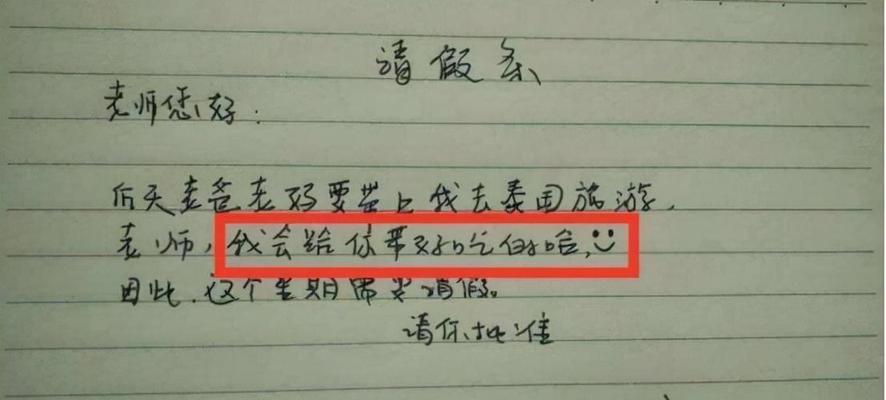 请假条
老师您好:
后天老爸老妈要带上我去泰国旅游,
老师,我会给你带好吃的哈,
因此,这个星期需要请假。
请你批准